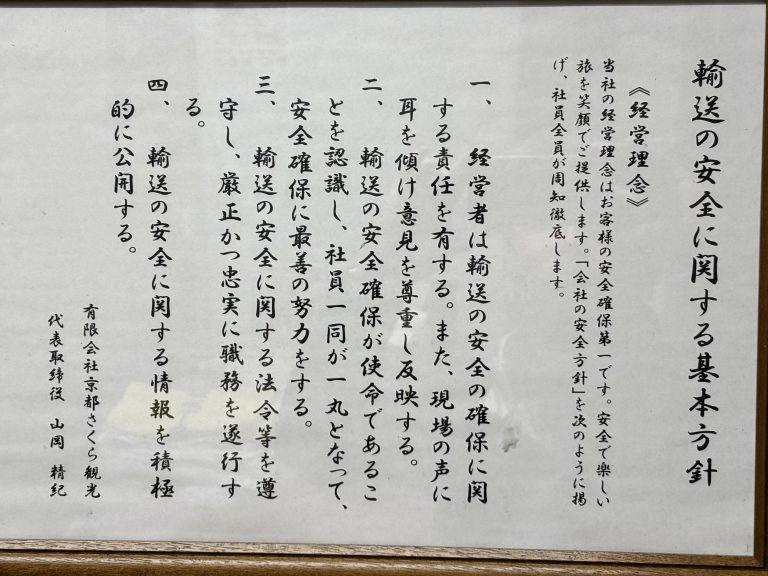 輸送の安全に関する基本方針
《経営理念》
当社の経営理念はお客様の安全確保第一です。安全で楽しい
旅を笑顔でご提供します。「会社の安全方針」を次のように掲
げ、社員全員が周知徹底します。
一、　経営者は輸送の安全の確保に関
する責任を有する。また、現場の声に
耳を傾け意見を尊重し反映する。
二、　輸送の安全確保が使命であるこ
とを認識し、社員一同が一丸となって、
安全確保に最善の努力をする。
三、　輸送の安全に関する法令等を遵
守し、厳正かつ忠実に職務を遂行す
る。
四、　輸送の安全に関する情報を積極
的に公開する。
有限会社京都さくら観光
代表取締役　山岡　精紀